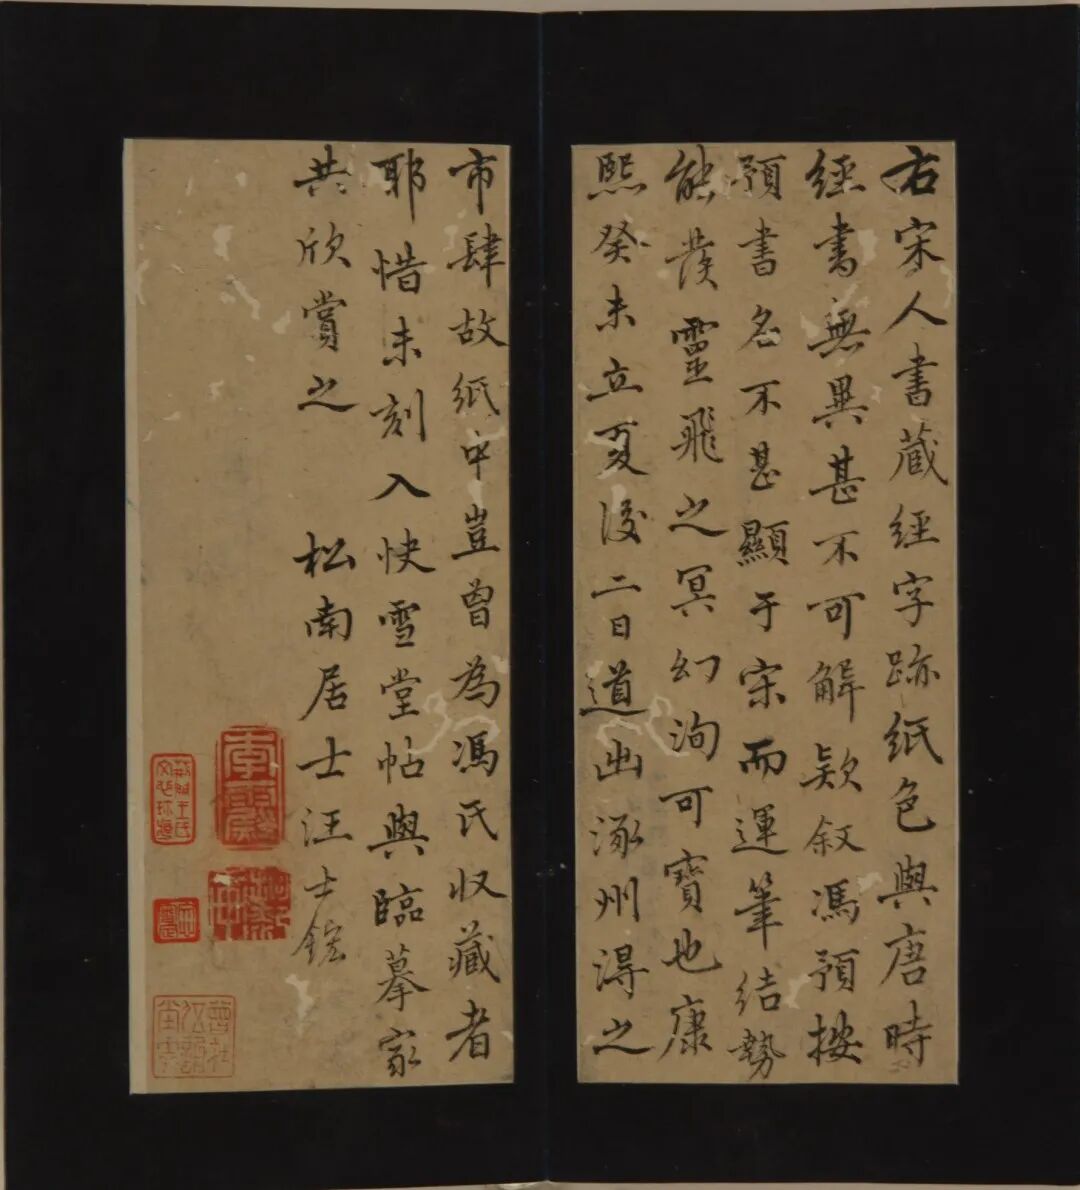 右宋人書藏經字跡紙色與唐時
經書無異甚不可解款叙馮預按
預書名不甚顯于宋而運筆結勢
能發靈飛之冥幻洵可寶也康
熙癸未立夏後二日道出涿州得之
市肆故紙中豈曾為馮氏收藏者
耶惜未刻入快雪堂帖與臨摹家
共欣賞之 松南居士汪士鋐